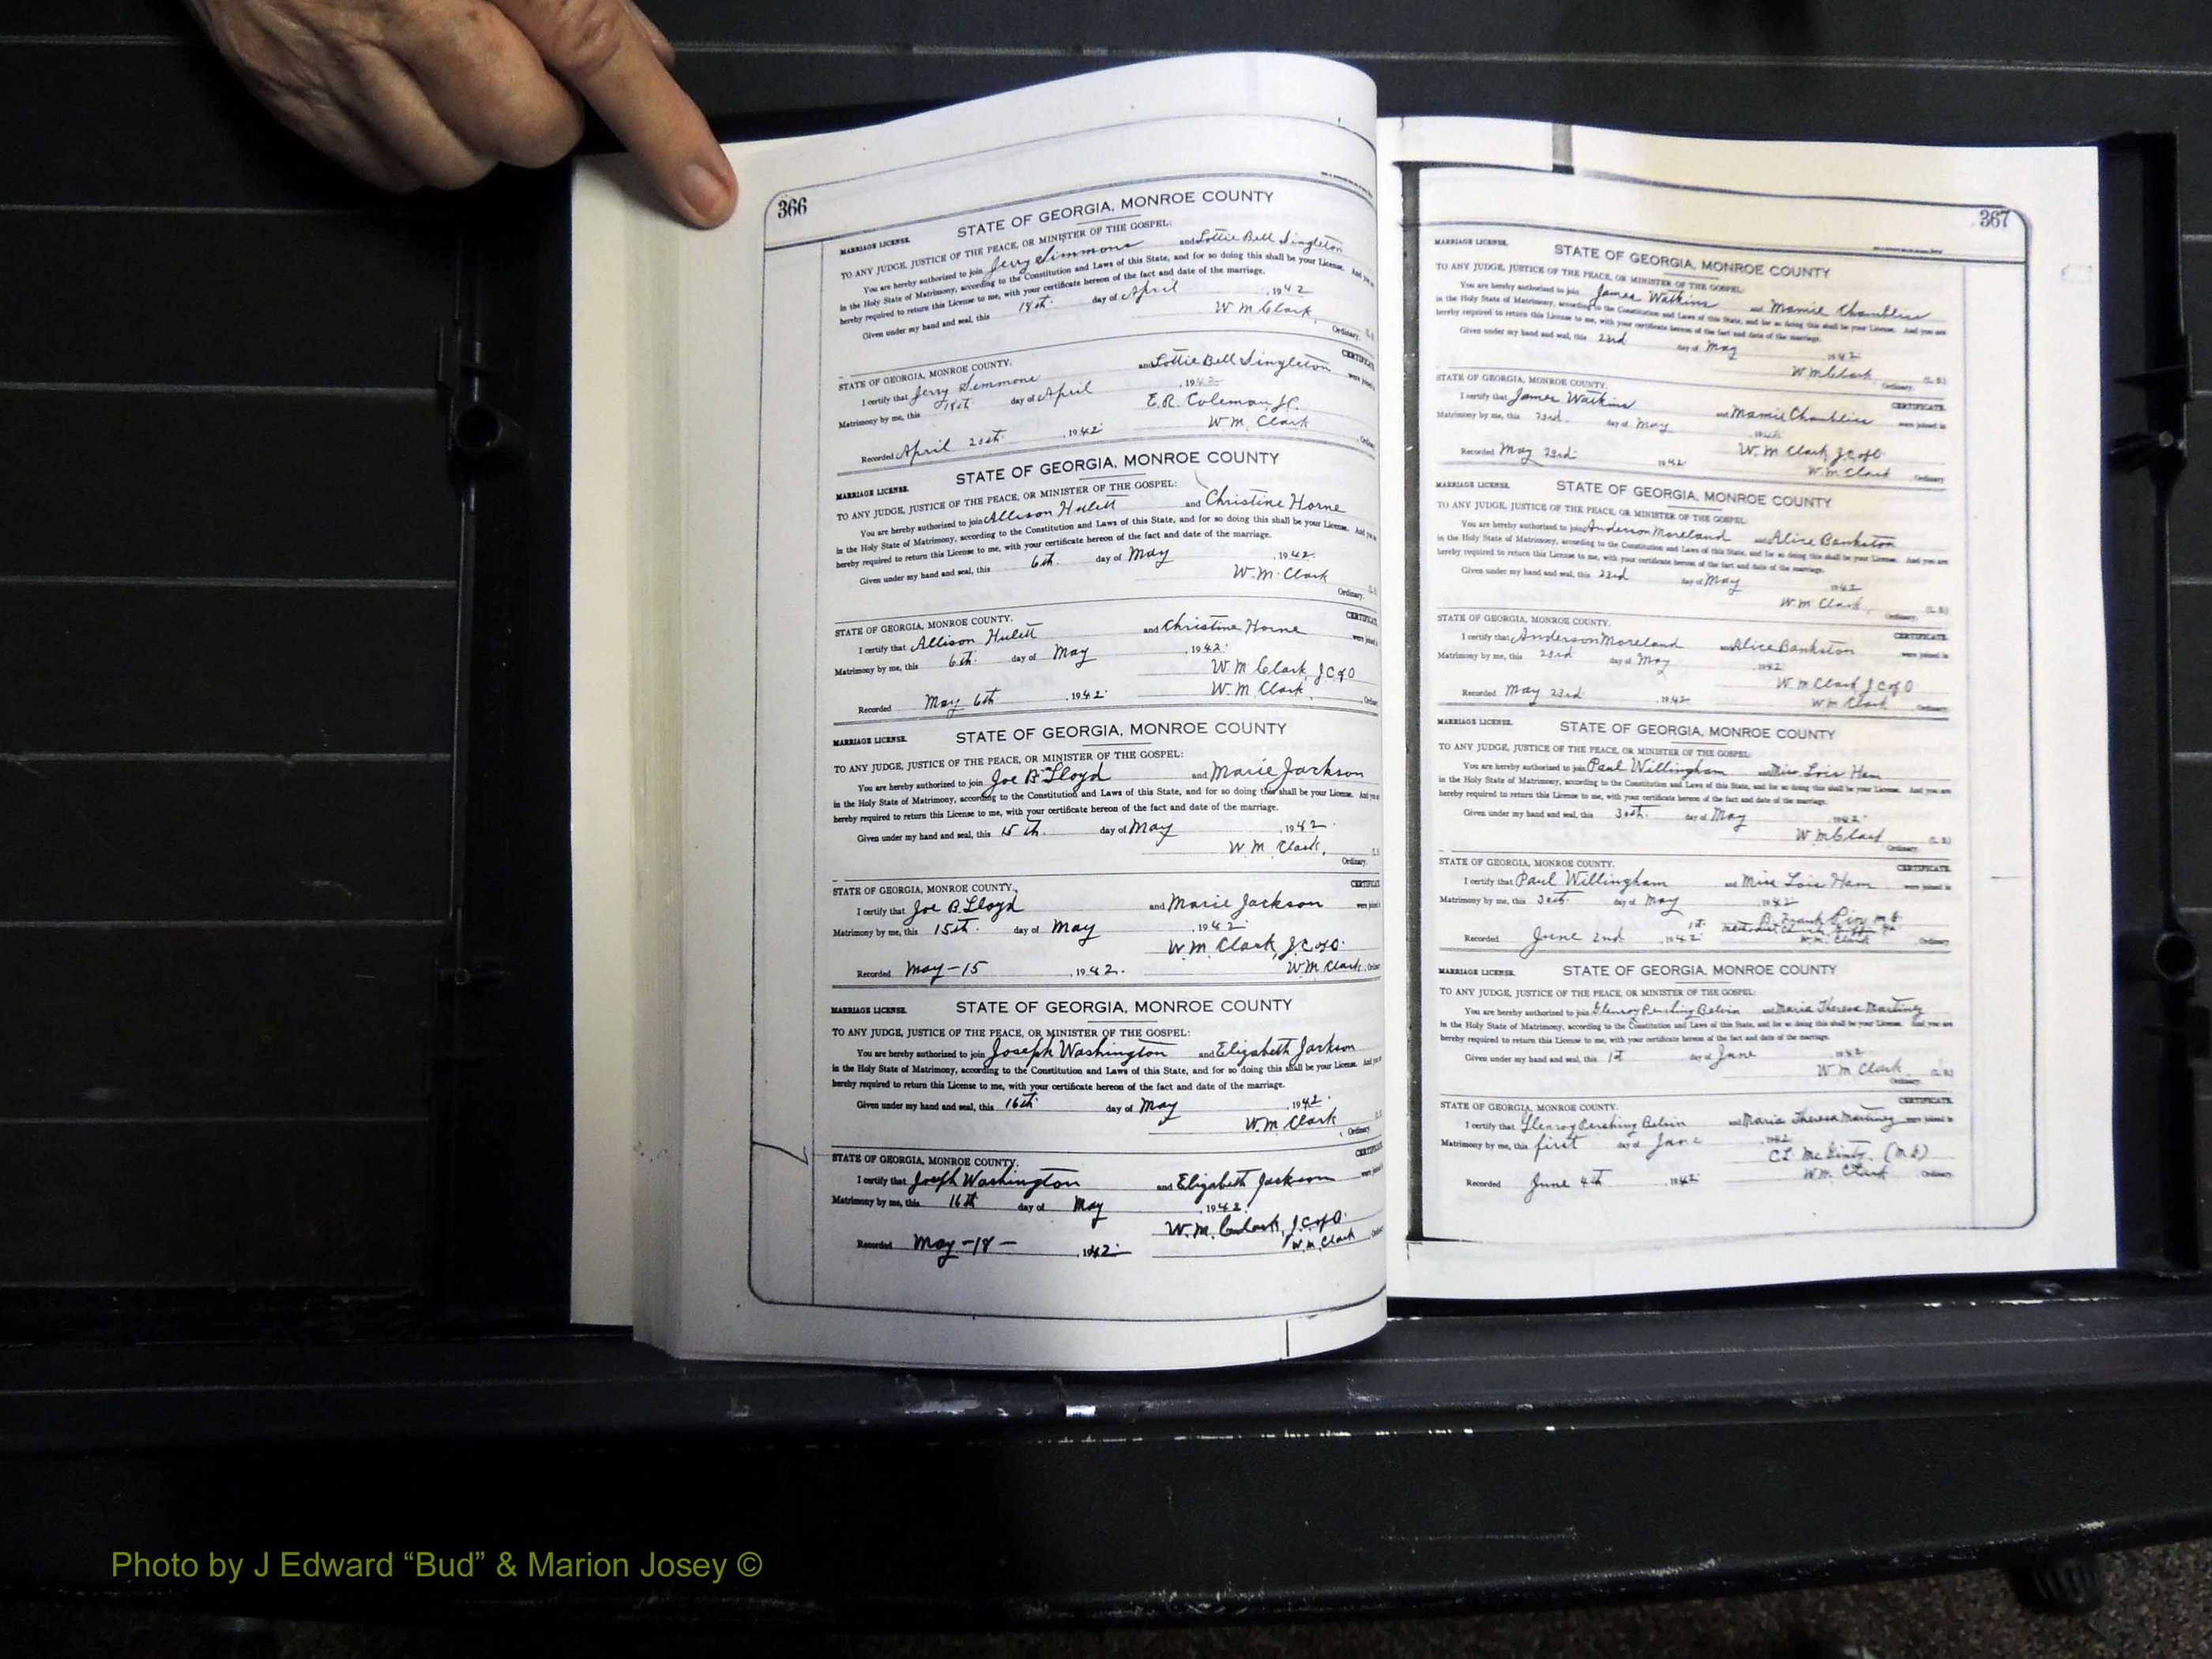 366
STATE OF GEORGIA, MONROE COUNTY
MARRIAGE LICENSE.
TO ANY JUDGE, JUSTICE OF THE PEACE, OR MINISTER OF THE GOSPEL:
You are hereby authorized to join Jerry Simmons and Lottie Bell Singleton
in the Holy State of Matrimony, according to the Constitution and Laws of this State, and for so doing this shall be your License. And you
hereby required to return this License to me, with your certificate hereon of the fact and date of the marriage.
Given under my hand and seal, this 18th. day of April, 1942
W M Clark,
Ordinary.
STATE OF GEORGIA, MONROE COUNTY. CERTIFICATE
I certify that Jerry Simmons and Lottie Bell Singleton were joined
Matrimony by me, this 18th. day of April, 1942
E.R. Coleman, J.P.
Recorded April 20th. , 1942 W.M. Clark
STATE OF GEORGIA, MONROE COUNTY
MARRIAGE LICENSE.
TO ANY JUDGE, JUSTICE OF THE PEACE, OR MINISTER OF THE GOSPEL:
You are hereby authorized to join Allison Hulett and Christine Horne
in the Holy State of Matrimony, according to the Constitution and Laws of this State, and for so doing this shall be your License. And you
hereby required to return this License to me, with your certificate hereon of the fact and date of the marriage.
Given under my hand and seal, this 6th. day of May , 1942.
W.M. Clark
Ordinary.
STATE OF GEORGIA, MONROE COUNTY. CERTIFICATE
I certify that Allison Hulett and Christine Horne were joined
Matrimony by me, this 6th. day of May , 1942.
W M Clark, J C of O
Recorded May 6th , 1942. W.M Clark.
STATE OF GEORGIA, MONROE COUNTY
MARRIAGE LICENSE.
TO ANY JUDGE, JUSTICE OF THE PEACE, OR MINISTER OF THE GOSPEL:
You are hereby authorized to join Joe B. Lloyd and Marie Jackson
in the Holy State of Matrimony, according to the Constitution and Laws of this State, and for so doing this shall be your License. And you
hereby required to return this License to me, with your certificate hereon of the fact and date of the marriage.
Given under my hand and seal, this 15th. day of May , 1942.
W.M. Clark.
Ordinary.
STATE OF GEORGIA, MONROE COUNTY. CERTIFICAT
I certify that Joe B. Lloyd and Marie Jackson were joined
Matrimony by me, this 15th. day of May , 1942
W.M Clark, J.C of O.
Recorded May-15 , 1942. W.M Clark.
STATE OF GEORGIA, MONROE COUNTY
MARRIAGE LICENSE.
TO ANY JUDGE, JUSTICE OF THE PEACE, OR MINISTER OF THE GOSPEL:
You are hereby authorized to join Joseph Washington and Elizabeth Jackson
in the Holy State of Matrimony, according to the Constitution and Laws of this State, and for so doing this shall be your License. And you
hereby required to return this License to me, with your certificate hereon of the fact and date of the marriage.
Given under my hand and seal, this 16th. day of May , 1942.
W.M Clark
Ordinary.
STATE OF GEORGIA, MONROE COUNTY. CERTIFICATE
I certify that Joseph Washington and Elizabeth Jackson were joined
Matrimony by me, this 16th day of May , 1942.
W.M. Clark, J.C of O.
Recorded May-18- , 1942. W.M. Clark
367
STATE OF GEORGIA, MONROE COUNTY
MARRIAGE LICENSE.
TO ANY JUDGE, JUSTICE OF THE PEACE, OR MINISTER OF THE GOSPEL:
You are hereby authorized to join James Watkins and Mamie Chambliss
in the Holy State of Matrimony, according to the Constitution and Laws of this State, and for so doing this shall be your License. And you are
hereby required to return this License to me, with your certificate hereon of the fact and date of the marriage.
Given under my hand and seal, this 23rd day of May 1942
W M Clark (L. S.)
Ordinary.
STATE OF GEORGIA, MONROE COUNTY. CERTIFICATE.
I certify that James Watkins and Mamie Chambliss were joined in
Matrimony by me, this 23rd. day of May , 1942
W. M Clark, J C of O
Recorded May 23rd. 1942 W. M Clark Ordinary
STATE OF GEORGIA, MONROE COUNTY
MARRIAGE LICENSE.
TO ANY JUDGE, JUSTICE OF THE PEACE, OR MINISTER OF THE GOSPEL:
You are hereby authorized to join Anderson Moreland and Alice Bankston
in the Holy State of Matrimony, according to the Constitution and Laws of this State, and for so doing this shall be your License. And you are
hereby required to return this License to me, with your certificate hereon of the fact and date of the marriage.
Given under my hand and seal, this 23rd day of May 1942
W.M Clark, (L. S.)
Ordinary.
STATE OF GEORGIA, MONROE COUNTY. CERTIFICATE.
I certify that Anderson Moreland and Alice Bankston were joined in
Matrimony by me, this 23rd day of May , 1942
W M Clark J C of O
Recorded May 23rd , 1942 W M Clark Ordinary
STATE OF GEORGIA, MONROE COUNTY
MARRIAGE LICENSE.
TO ANY JUDGE, JUSTICE OF THE PEACE, OR MINISTER OF THE GOSPEL:
You are hereby authorized to join Paul Willingham and Miss Lois Ham
in the Holy State of Matrimony, according to the Constitution and Laws of this State, and for so doing this shall be your License. And you are
hereby required to return this License to me, with your certificate hereon of the fact and date of the marriage.
Given under my hand and seal, this 30th. day of May 1942
W M Clark (L. S.)
Ordinary.
STATE OF GEORGIA, MONROE COUNTY. CERTIFICATE.
I certify that Paul Willingham and Miss Lois Ham were joined in
Matrimony by me, this 30th. day of May , 1942
B. Frank M.G.
1st. Methodist Church, Ga.
Recorded June 2nd , 1942 W.M. Clark Ordinary
STATE OF GEORGIA, MONROE COUNTY
MARRIAGE LICENSE.
TO ANY JUDGE, JUSTICE OF THE PEACE, OR MINISTER OF THE GOSPEL:
You are hereby authorized to join Glenroy Pershing Belvin and Maria Theresa Martinez
in the Holy State of Matrimony, according to the Constitution and Laws of this State, and for so doing this shall be your License. And you are
hereby required to return this License to me, with your certificate hereon of the fact and date of the marriage.
Given under my hand and seal, this 1st day of June 1942
W M Clark. (L. S.)
Ordinary.
STATE OF GEORGIA, MONROE COUNTY. CERTIFICATE.
I certify that Glenroy Pershing Belvin and Maria Theresa Martinez were joined in
Matrimony by me, this first day of June , 1942
C.L. McGinty. (M G)
Recorded June 4th , 1942 W.M. Clark Ordinary
Photo by J Edward “Bud” & Marion Josey ©